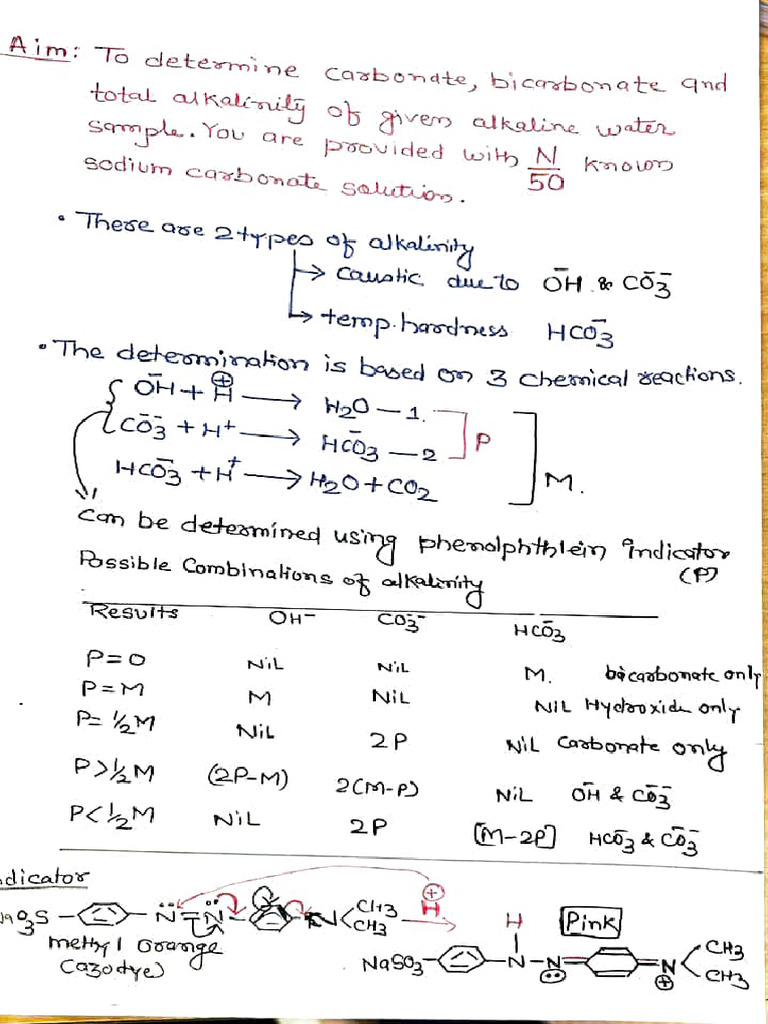 Aim: To determine carbonate, bicarbonate and
total alkalinity of given alkaline water
sample. You are provided with N/50 known
sodium carbonate solution.
• There are 2 types of alkalinity
→ caustic due to OH⁻ & CO₃⁻⁻
→ temp. hardness HCO₃⁻
• The determination is based on 3 chemical reactions.
OH⁻ + H⁺ → H2O — 1.
CO₃⁻⁻ + H⁺ → HCO₃⁻ — 2 P
HCO₃⁻ + H⁺ → H2O + CO2 M.
can be determined using phenolphthlein indicator
(P)
Possible Combinations of alkalinity
Results OH⁻ CO₃⁻⁻ HCO₃⁻
P=0 NiL NiL M. bicarbonate only
P=M M NiL NiL Hydroxide only
P=½M NiL 2P NiL Carbonate only
P>½M (2P-M) 2(M-P) NiL OH⁻ & CO₃⁻⁻
P<½M NiL 2P [M-2P] HCO₃⁻ & CO₃⁻⁻
ndicator
NaO3S N=N N CH3 CH3 H⁺ → H Pink
methyl orange
(azodye)
NaSO3 N-N= =N⊕ CH3 CH3